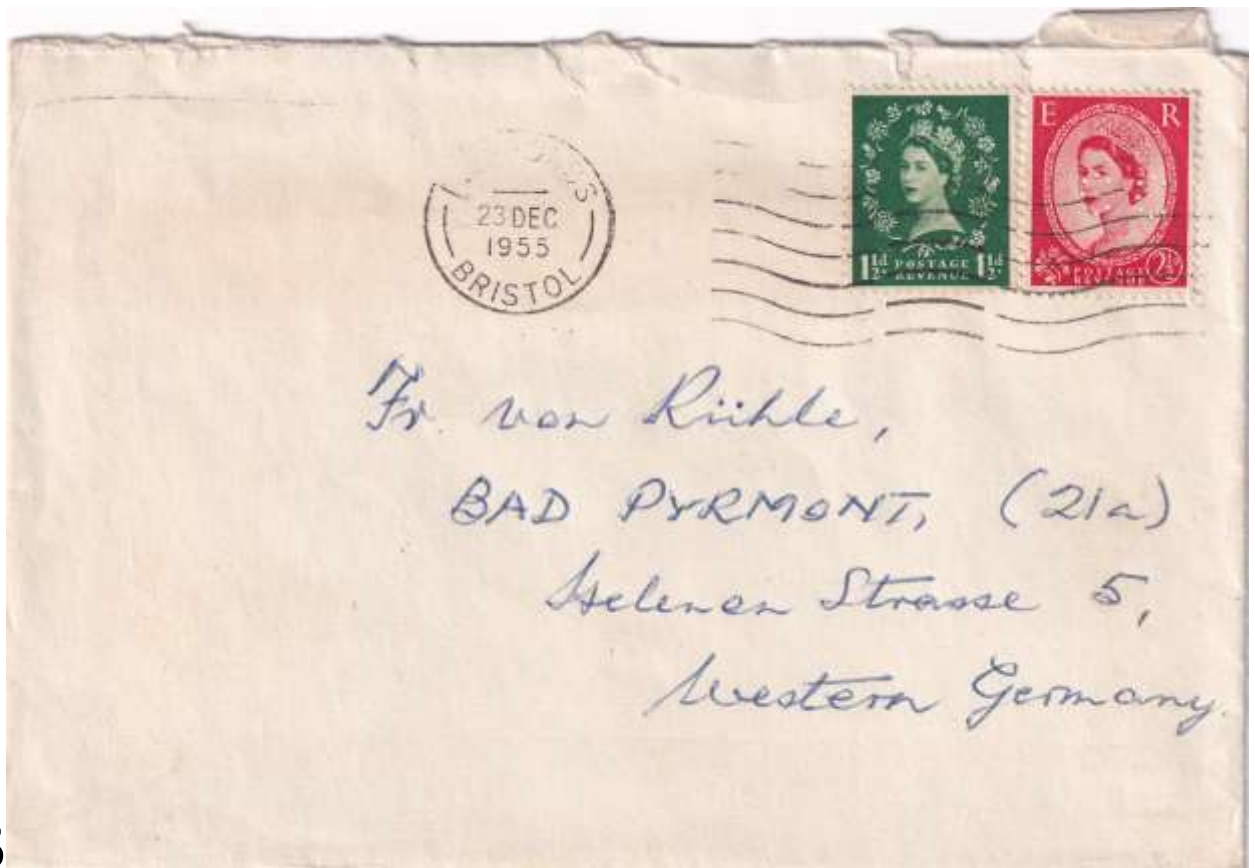 23 DEC
1955
BRISTOL
E R
1½d POSTAGE REVENUE 1½d
POSTAGE
2½
Fr. von Rühle,
BAD PYRMONT, (21a)
Helenen Strasse 5,
Western Germany.